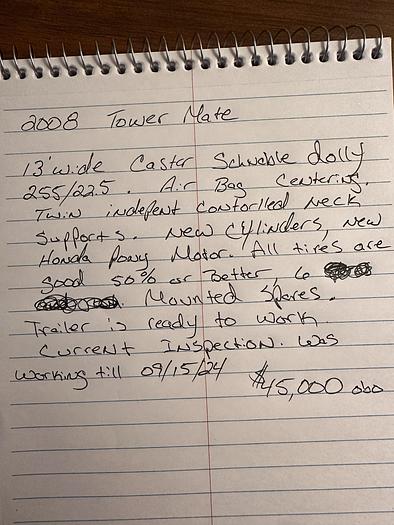 2008 Tower Mate
13' wide Caster Schnable dolly
255/22.5. Air Bag Centering.
Twin indepent contorlled neck
Supports. New Cylinders, New
Honda Pony Motor. All tires are
good 50% or better 6
Mounted Spares.
Trailer is ready to work
Current Inspection. Was
working till 09/15/24
$45,000 obo